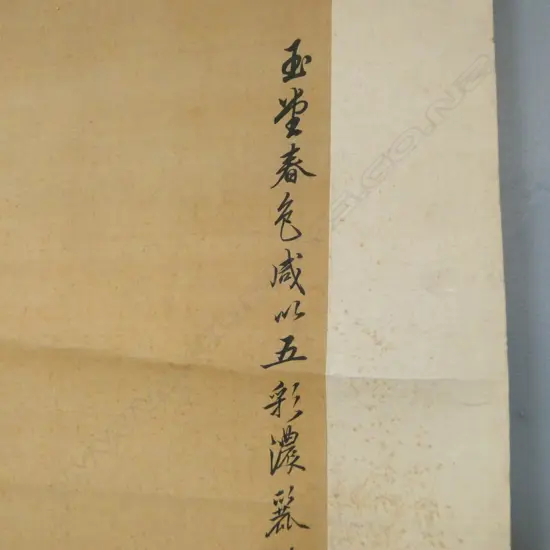 玉堂春色咸以五彩濃麗